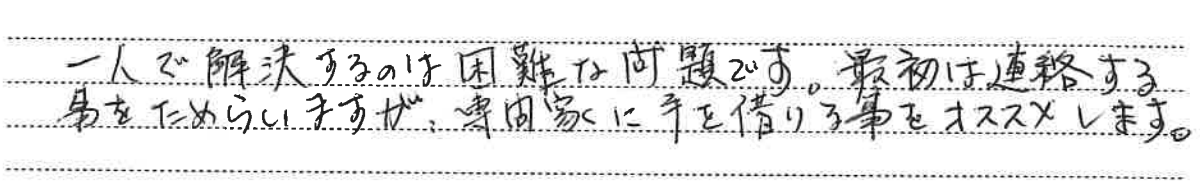 一人で解決するのは困難な問題です。最初は連絡する
事をためらいますが、専門家に手を借りる事をオススメします。